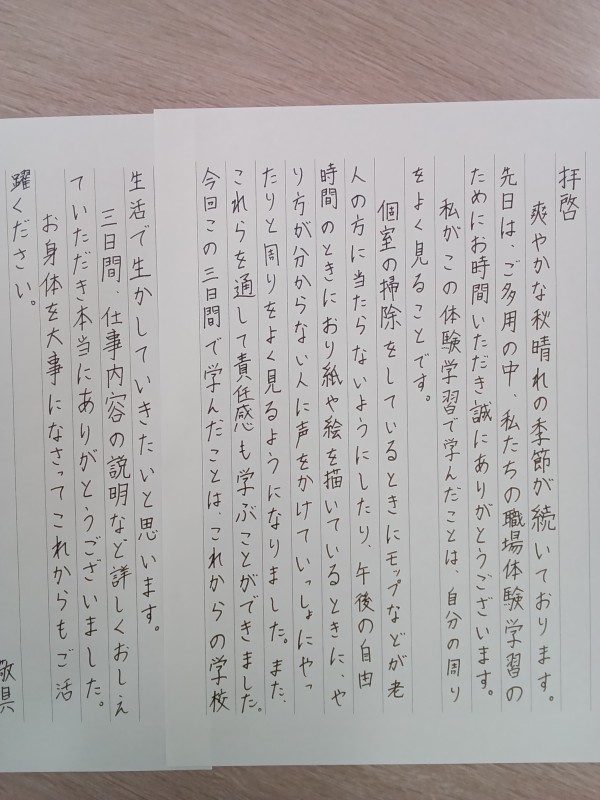 拝啓
爽やかな秋晴れの季節が続いております。
先日は、ご多用の中、私たちの職場体験学習の
ためにお時間いただき誠にありがとうございます。
私がこの体験学習で学んだことは、自分の周り
をよく見ることです。
個室の掃除をしているときにモップなどが老
人の方に当たらないようにしたり、午後の自由
時間のときにおり紙や絵を描いているときに、や
り方が分からない人に声をかけていっしょにやっ
たりと周りをよく見るようになりました。また、
これらを通して責任感も学ぶことができました。
今回この三日間で学んだことは、これからの学校
生活で生かしていきたいと思います。
三日間、仕事内容の説明など詳しくおしえ
ていただき本当にありがとうございました。
お身体を大事になさってこれからもご活
躍ください。
敬具